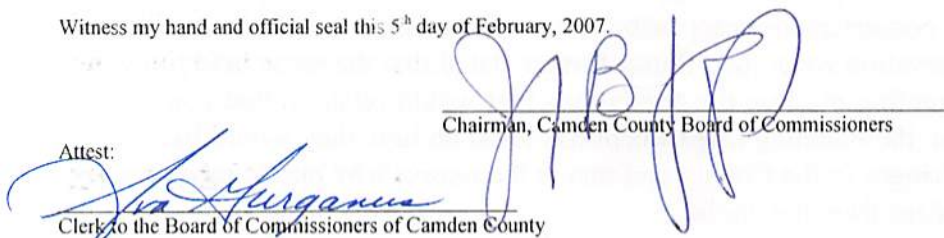 Witness my hand and official seal this 5th day of February, 2007.
Chairman, Camden County Board of Commissioners
Attest:
Ava Gurganus
Clerk to the Board of Commissioners of Camden County